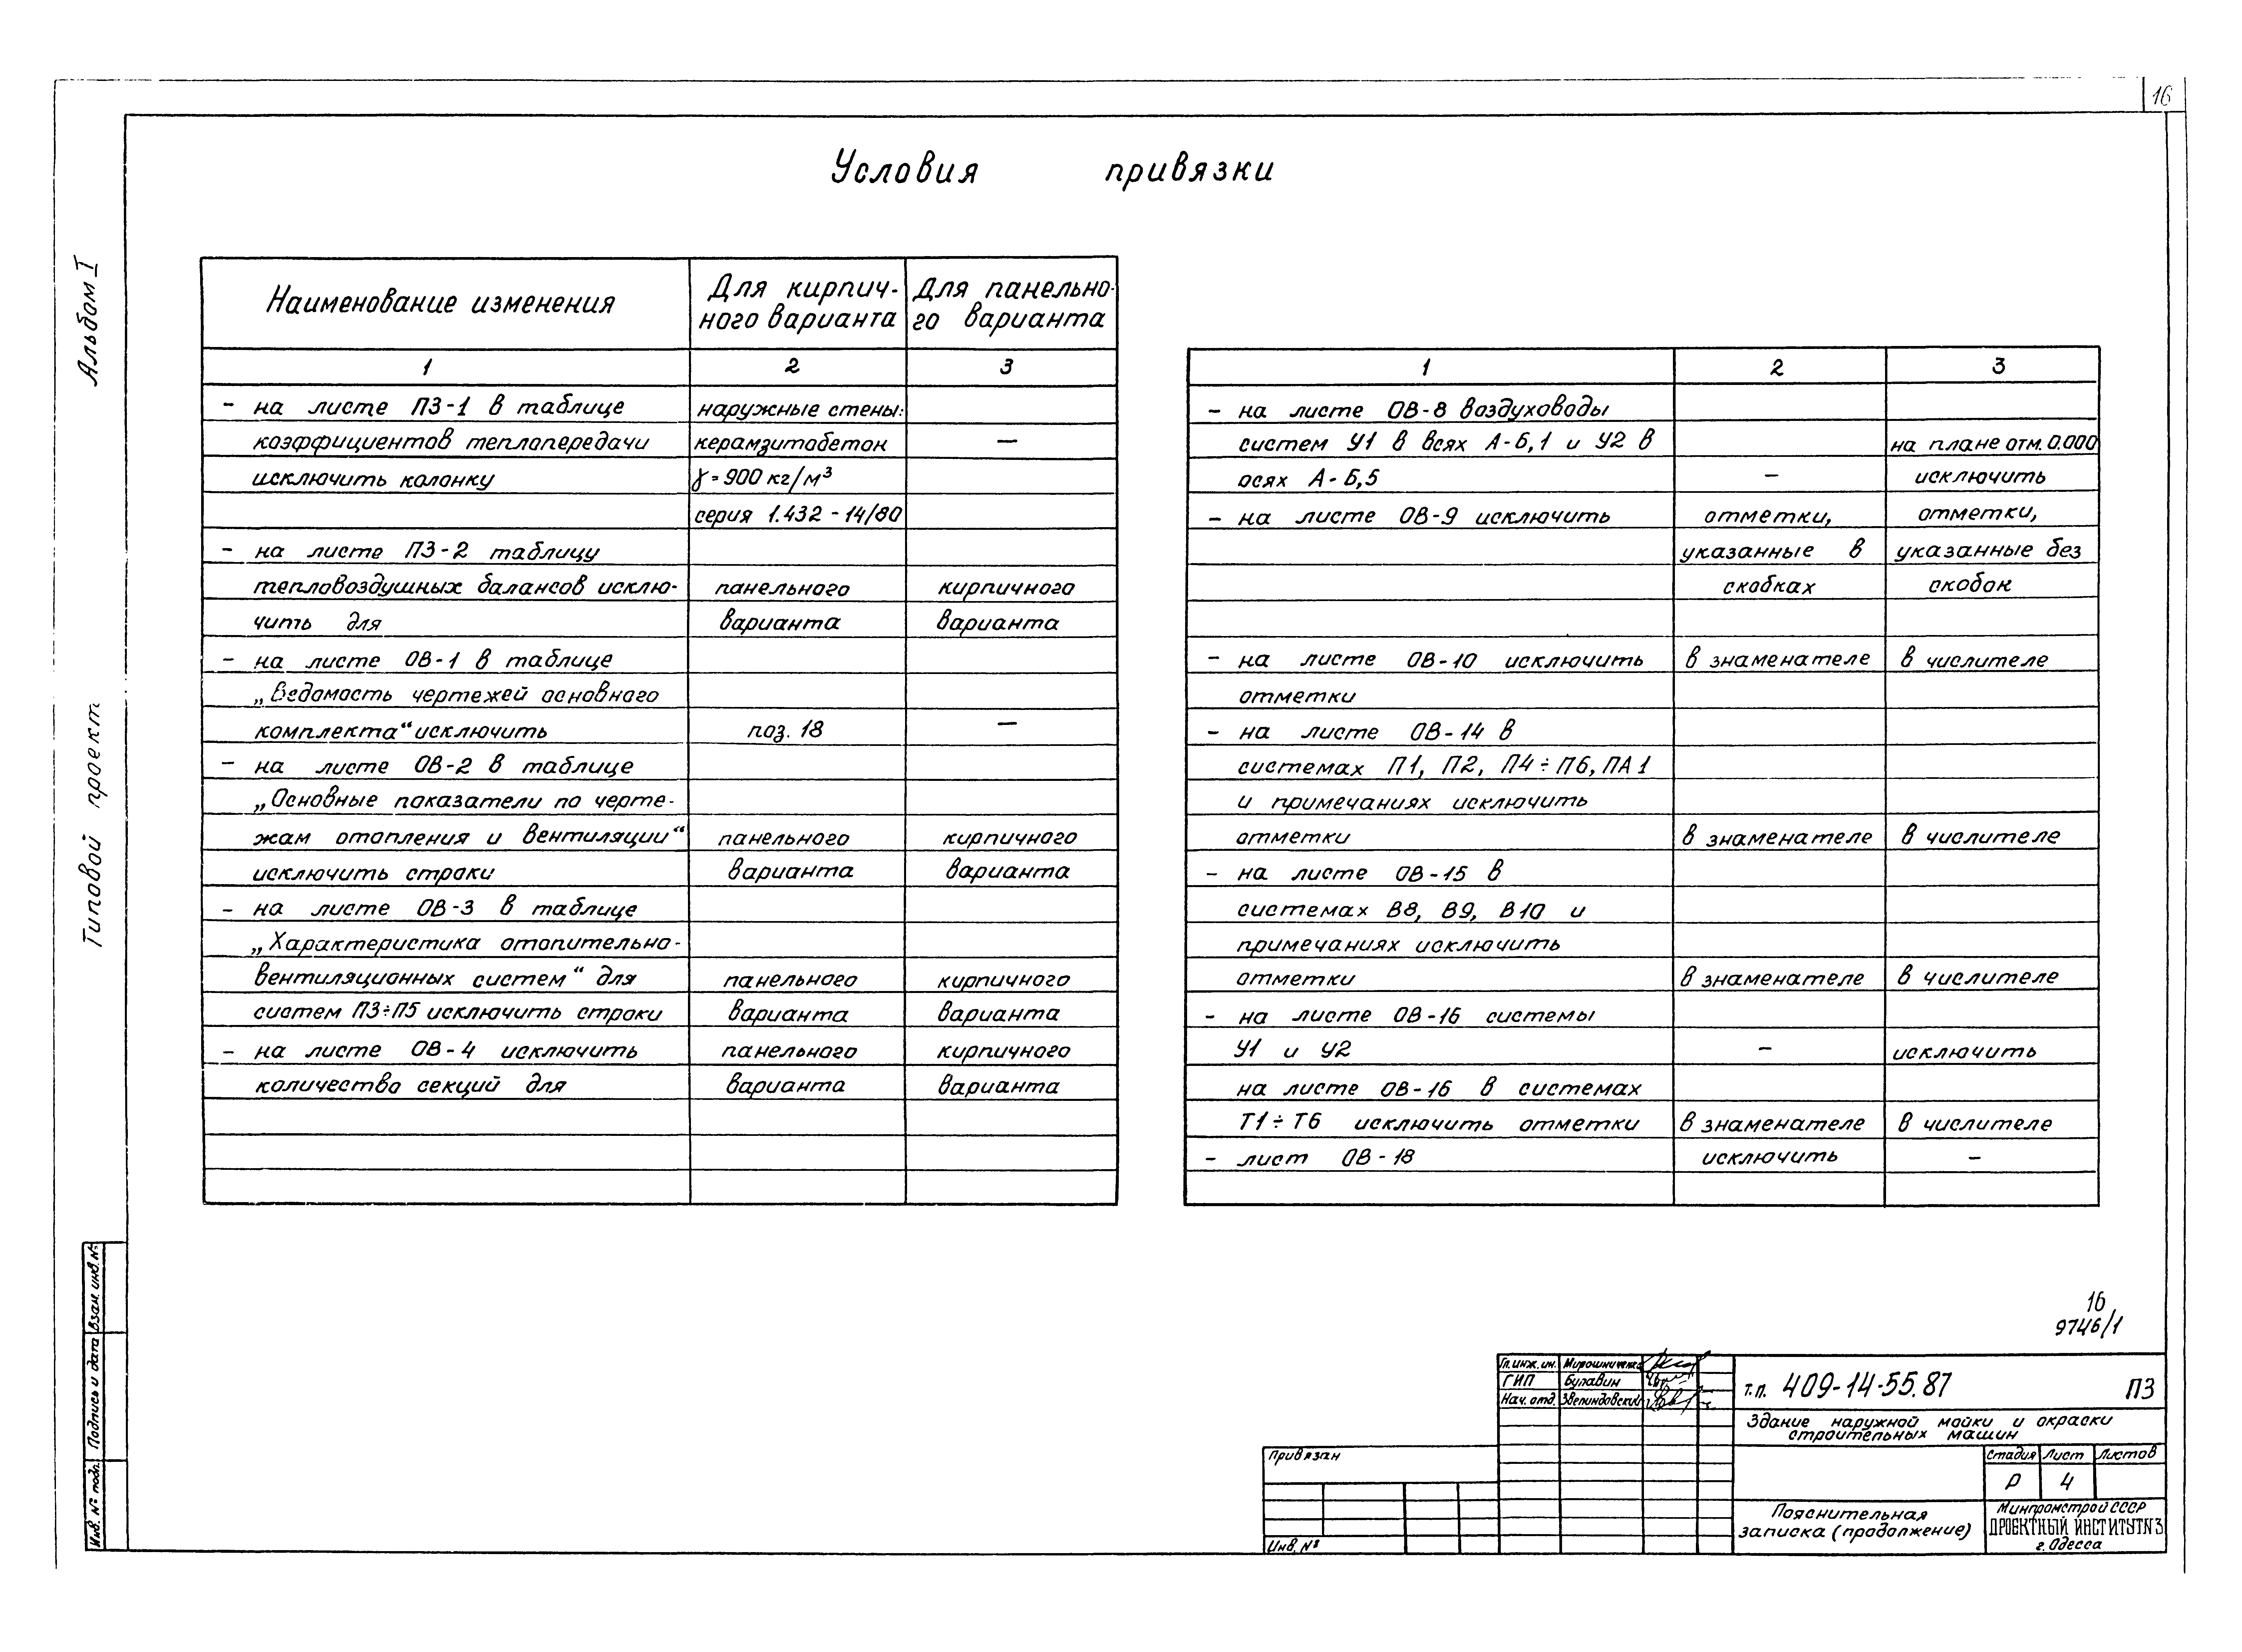 16
Условия привязки
Альбом I
Типовой проект
Наименование изменения | Для кирпич-ного варианта | Для панельно-го варианта
1 | 2 | 3
- на листе ПЗ-1 в таблице | наружные стены:
коэффициентов теплопередачи | керамзитобетон | —
исключить колонку | γ = 900 кг/м³
серия 1.432 - 14/80
- на листе ПЗ-2 таблицу
тепловоздушных балансов исклю- | панельного | кирпичного
чить для | варианта | варианта
- на листе ОВ-1 в таблице
„Ведомость чертежей основного
комплекта“ исключить | поз. 18 | —
- на листе ОВ-2 в таблице
„Основные показатели по черте-
жам отопления и вентиляции“ | панельного | кирпичного
исключить строки | варианта | варианта
- на листе ОВ-3 в таблице
„Характеристика отопительно-
вентиляционных систем“ для | панельного | кирпичного
систем П3÷П5 исключить строки | варианта | варианта
- на листе ОВ-4 исключить | панельного | кирпичного
количество секций для | варианта | варианта
1 | 2 | 3
- на листе ОВ-8 воздуховоды
систем У1 в всях А-Б,1 и У2 в | на плане отм. 0.000
осях А-Б,5 | — | исключить
- на листе ОВ-9 исключить | отметки, | отметки,
указанные в | указанные без
скобках | скобок
- на листе ОВ-10 исключить | в знаменателе | в числителе
отметки
- на листе ОВ-14 в
системах П1, П2, П4÷П6, ПА1
и примечаниях исключить
отметки | в знаменателе | в числителе
- на листе ОВ-15 в
системах В8, В9, В10 и
примечаниях исключить
отметки | в знаменателе | в числителе
- на листе ОВ-16 системы
У1 и У2 | — | исключить
на листе ОВ-16 в системах
Т1÷Т6 исключить отметки | в знаменателе | в числителе
- лист ОВ-18 | исключить | —
16
9746/1
Гл. инж. ин. Мирошниченко
ГИП Булавин
Нач. отд. Звелиндовский
т.п. 409-14-55.87 ПЗ
Здание наружной мойки и окраски
строительных машин
Стадия Лист Листов
Р 4
Пояснительная
записка (продолжение)
Минпромстрой СССР
ПРОЕКТНЫЙ ИНСТИТУТ №3
г. Одесса
Привязан
Инв. №
Взам. инв. №
Подпись и дата
Инв. № подл.